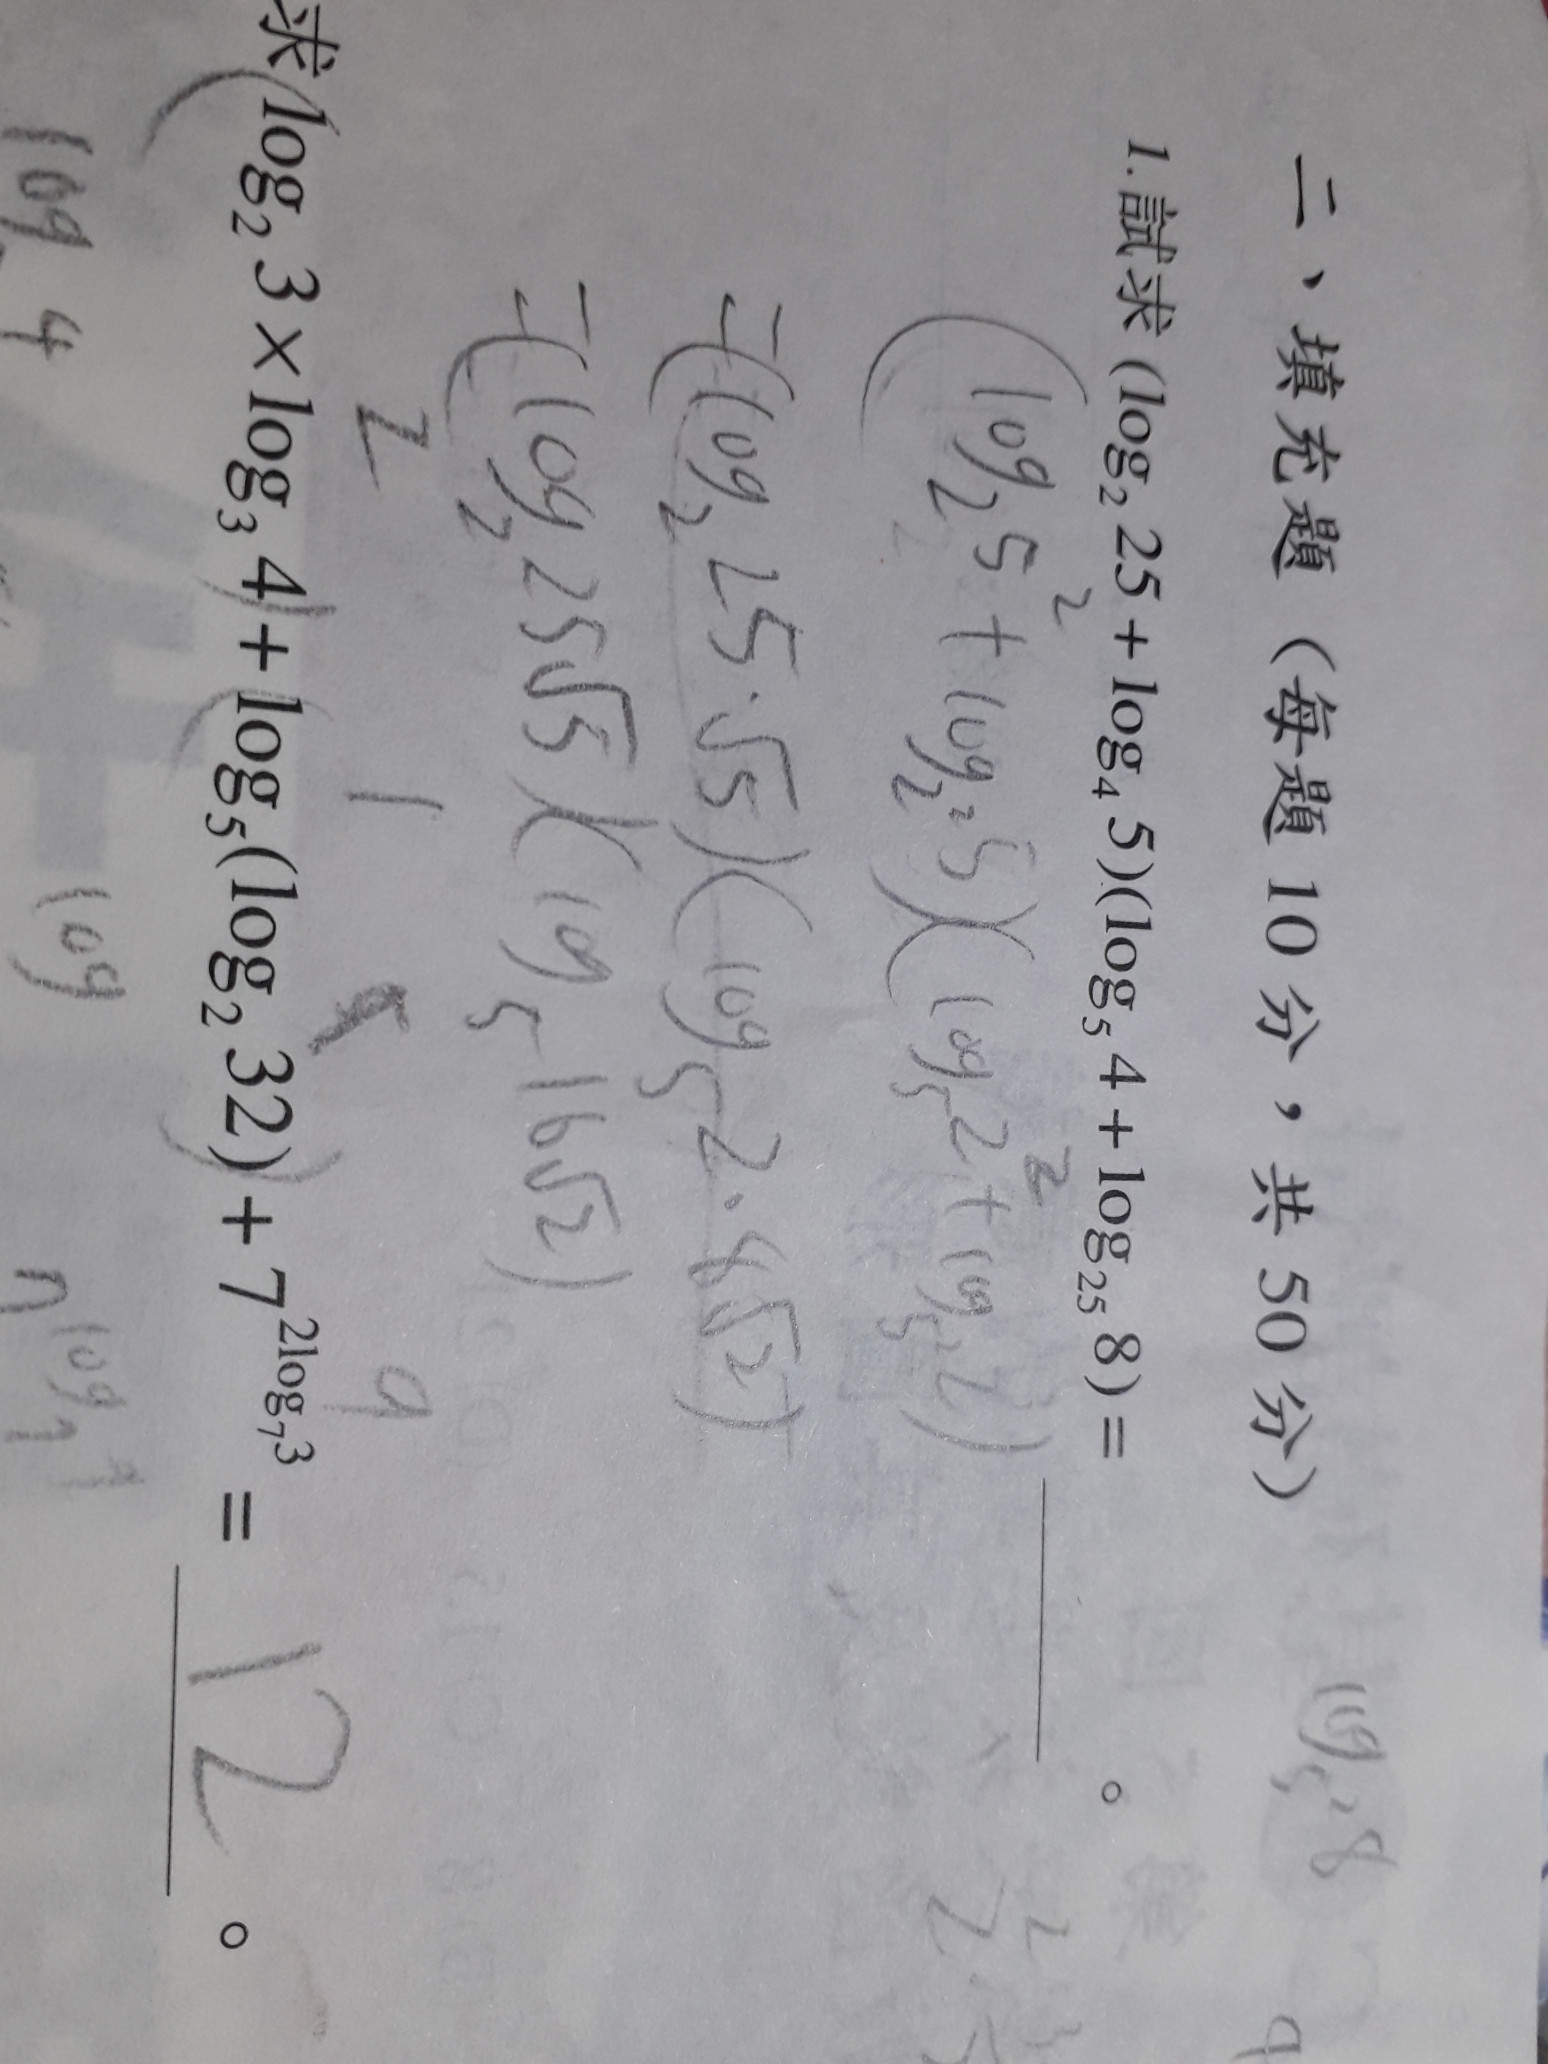 二、填充題（每題 10 分，共 50 分）
log₅²8
1.試求 (log₂ 25 + log₄ 5)(log₅ 4 + log₂₅ 8) = ______。
(log₂5² + log₂²5)(log₅2² + log₅²2³)
=(log₂25·√5)(log₅2·8√2)
=(log₂25√5)(log₅16√2)
2 1 9
求 log₂ 3 × log₃ 4 + log₅(log₂ 32) + 7^{2log₇3} = 12。
log 4 log